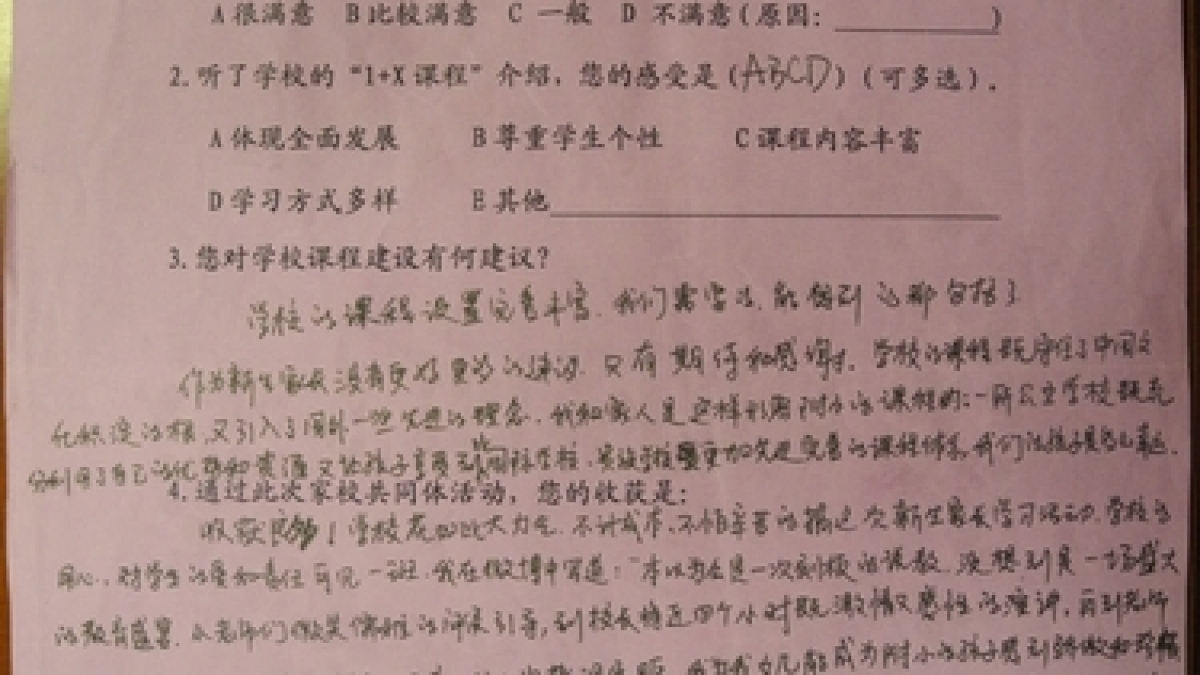 A 很满意 B 比较满意 C 一般 D 不满意(原因: )
2. 听了学校的“1+X 课程”介绍，您的感受是(ABCD)(可多选)。
A 体现全面发展 B 尊重学生个性 C 课程内容丰富
D 学习方式多样 E 其他
3. 您对学校课程建设有何建议?
学校的课程设置完善丰富. 我们需 能想到的都包括了
作为新生家长没有更好更多的建议. 只有期待和感谢. 学校的课程既守住了中国文
化 的根, 又引入了国外一些先进的理念. 我和家人是这样 附小的课程的: 一所公立学校既充
分利用了自己的 和资源 又让孩子享受到国际学校、 更加先进完善的课程体系, 我们的孩子
4. 通过此次家校共同体活动，您的收获是:
收获 ! 学校花如此大力气. 不计成本. 不怕辛苦的搞这次新生家长学习活动. 学校的
用心. 对学生的爱和责任可见一斑. 我在微博中写道: “本以为这是一次刻板的说教. 没想到是一场盛大
的教育盛宴. 从老师们微笑 的 引导, 到校长将近四个小时既激情又感性的演讲, 再到老师
成为附小的孩子感到骄傲和